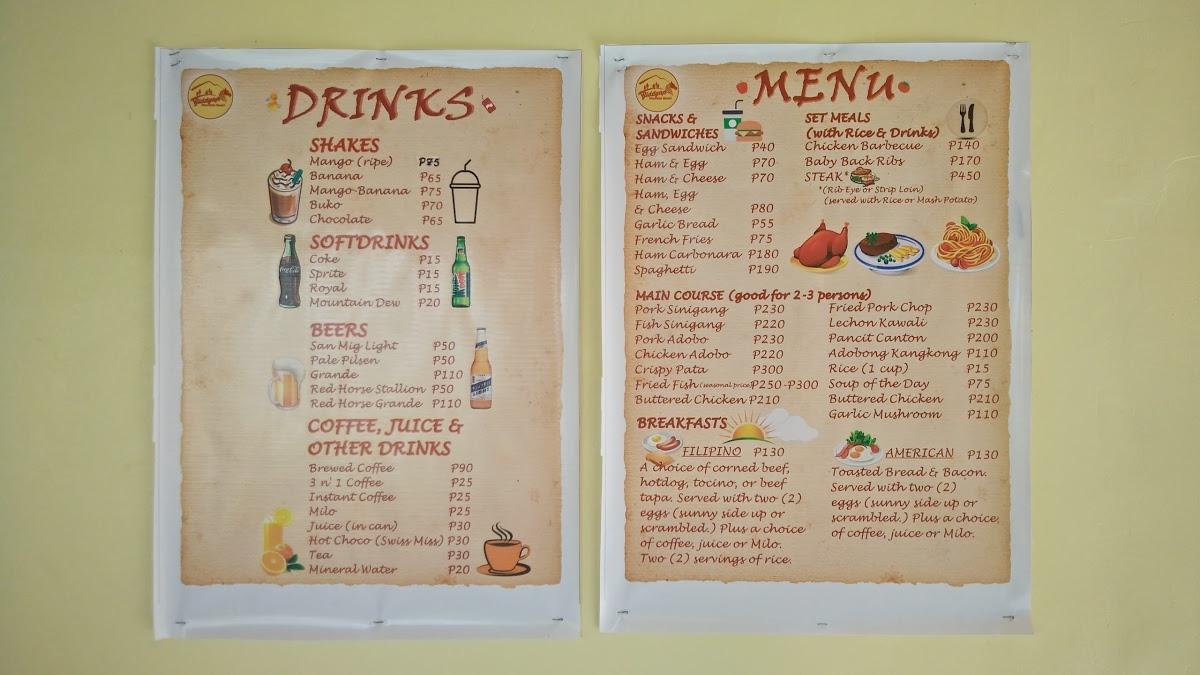 DRINKS
SHAKES
Mango (ripe) ₱75
Banana ₱65
Mango-Banana ₱75
Buko ₱70
Chocolate ₱65
SOFTDRINKS
Coke ₱15
Sprite ₱15
Royal ₱15
Mountain Dew ₱20
BEERS
San Mig Light ₱50
Pale Pilsen ₱50
Grande ₱110
Red Horse Stallion ₱50
Red Horse Grande ₱110
COFFEE, JUICE &
OTHER DRINKS
Brewed Coffee ₱90
3 n' 1 Coffee ₱25
Instant Coffee ₱25
Milo ₱25
Juice (in can) ₱30
Hot Choco (Swiss Miss) ₱30
Tea ₱30
Mineral Water ₱20
MENU
SNACKS &
SANDWICHES
Egg Sandwich ₱40
Ham & Egg ₱70
Ham & Cheese ₱70
Ham, Egg
& Cheese ₱80
Garlic Bread ₱55
French Fries ₱75
Ham Carbonara ₱180
Spaghetti ₱190
SET MEALS
(with Rice & Drinks)
Chicken Barbecue ₱140
Baby Back Ribs ₱170
STEAK* ₱450
*(Rib Eye or Strip Loin)
(served with Rice or Mash Potato)
MAIN COURSE (good for 2-3 persons)
Pork Sinigang ₱230
Fish Sinigang ₱220
Pork Adobo ₱230
Chicken Adobo ₱220
Crispy Pata ₱300
Fried Fish (seasonal price) ₱250-₱300
Buttered Chicken ₱210
Fried Pork Chop ₱230
Lechon Kawali ₱230
Pancit Canton ₱200
Adobong Kangkong ₱110
Rice (1 cup) ₱15
Soup of the Day ₱75
Buttered Chicken ₱210
Garlic Mushroom ₱110
BREAKFASTS
FILIPINO ₱130
A choice of corned beef,
hotdog, tocino, or beef
tapa. Served with two (2)
eggs (sunny side up or
scrambled.) Plus a choice
of coffee, juice or Milo.
Two (2) servings of rice.
AMERICAN ₱130
Toasted Bread & Bacon.
Served with two (2)
eggs (sunny side up or
scrambled.) Plus a choice
of coffee, juice or Milo.